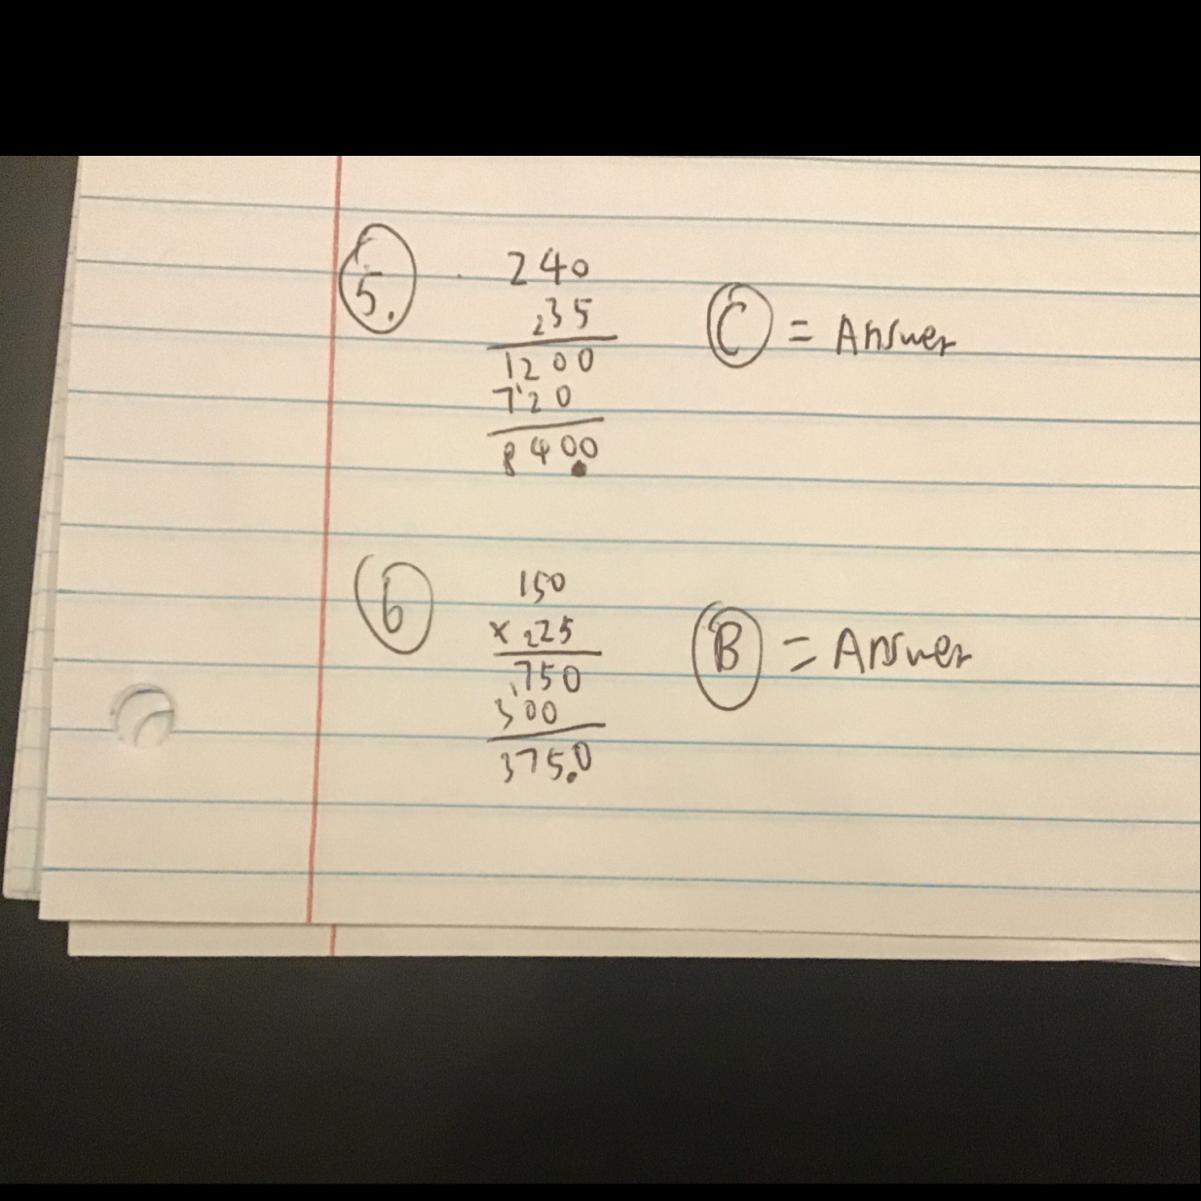 5.
240
235
1200
7'20
8400.
C = Answer
6
150
x 225
750
300
375.0
B = Answer